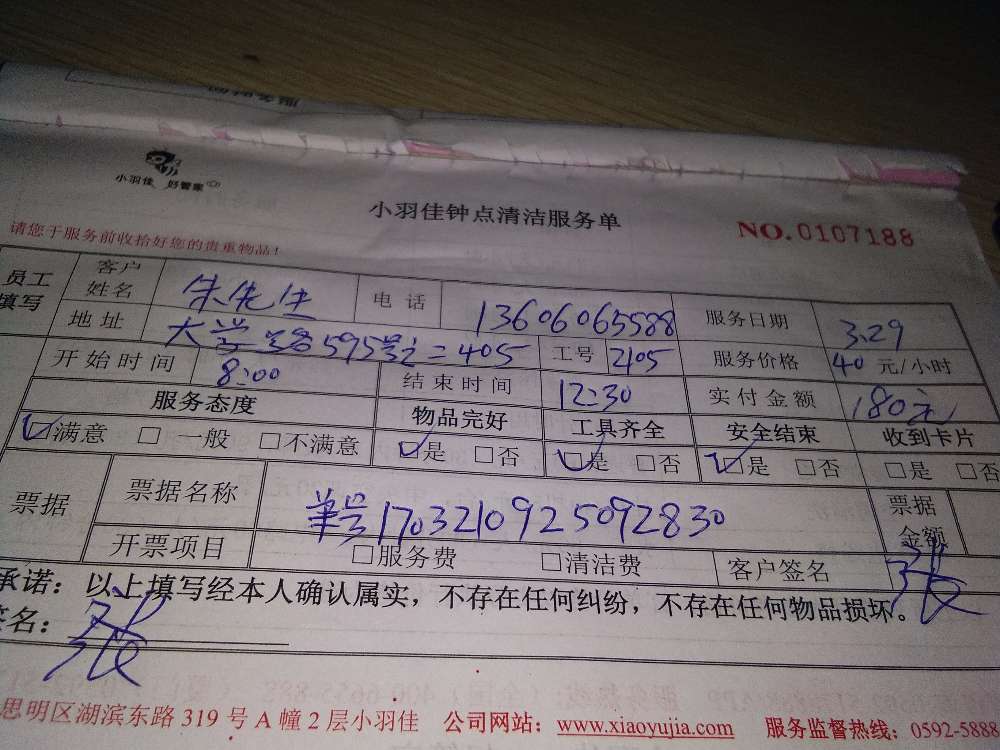 小羽佳 好管家
小羽佳钟点清洁服务单
NO.0107188
请您于服务前收拾好您的贵重物品！
员工填写 客户姓名 朱先生 电话 13606065588 服务日期 3.29
地址 大学路595号之二405 工号 2105 服务价格 40元/小时
开始时间 8:00 结束时间 12:30 实付金额 180元
服务态度 物品完好 工具齐全 安全结束 收到卡片
☑满意 □一般 □不满意 ☑是 □否 ☑是 □否 ☑是 □否 □是 □否
票据 票据名称 单号1703210925092830 票据金额
开票项目 □服务费 □清洁费 客户签名 张
承诺：以上填写经本人确认属实，不存在任何纠纷，不存在任何物品损坏。
签名：张
思明区湖滨东路319号A幢2层小羽佳 公司网站：www.xiaoyujia.com 服务监督热线：0592-5888